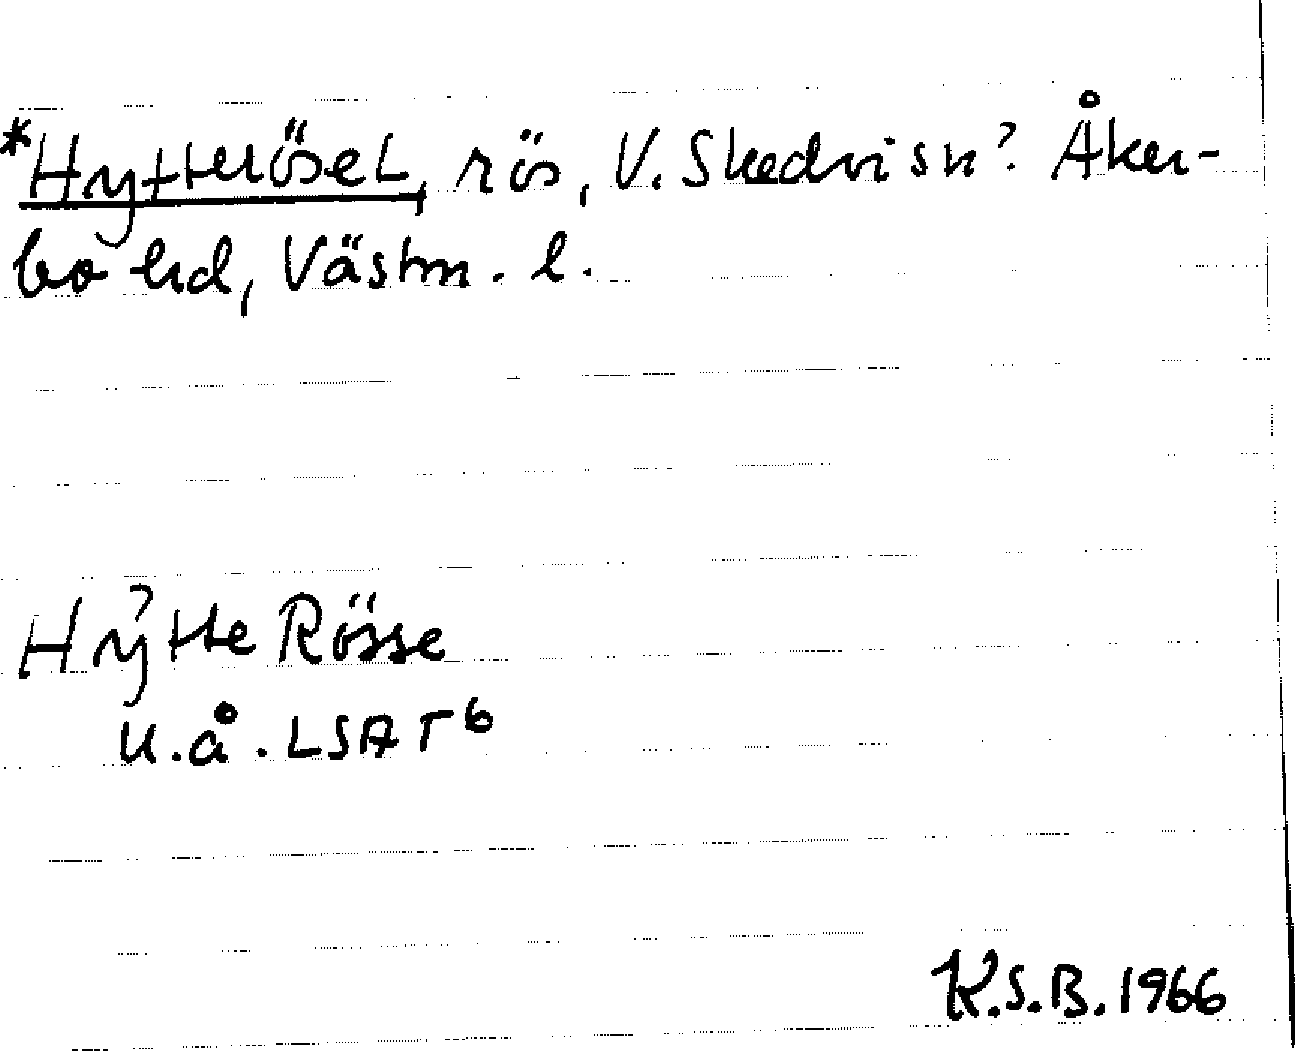 *Hytteröset, rös, V. Skedvi sn? Åker-
bo hd, Västm. l.
Hytte Rösse
u.å. LSA T6
K.S.B. 1966